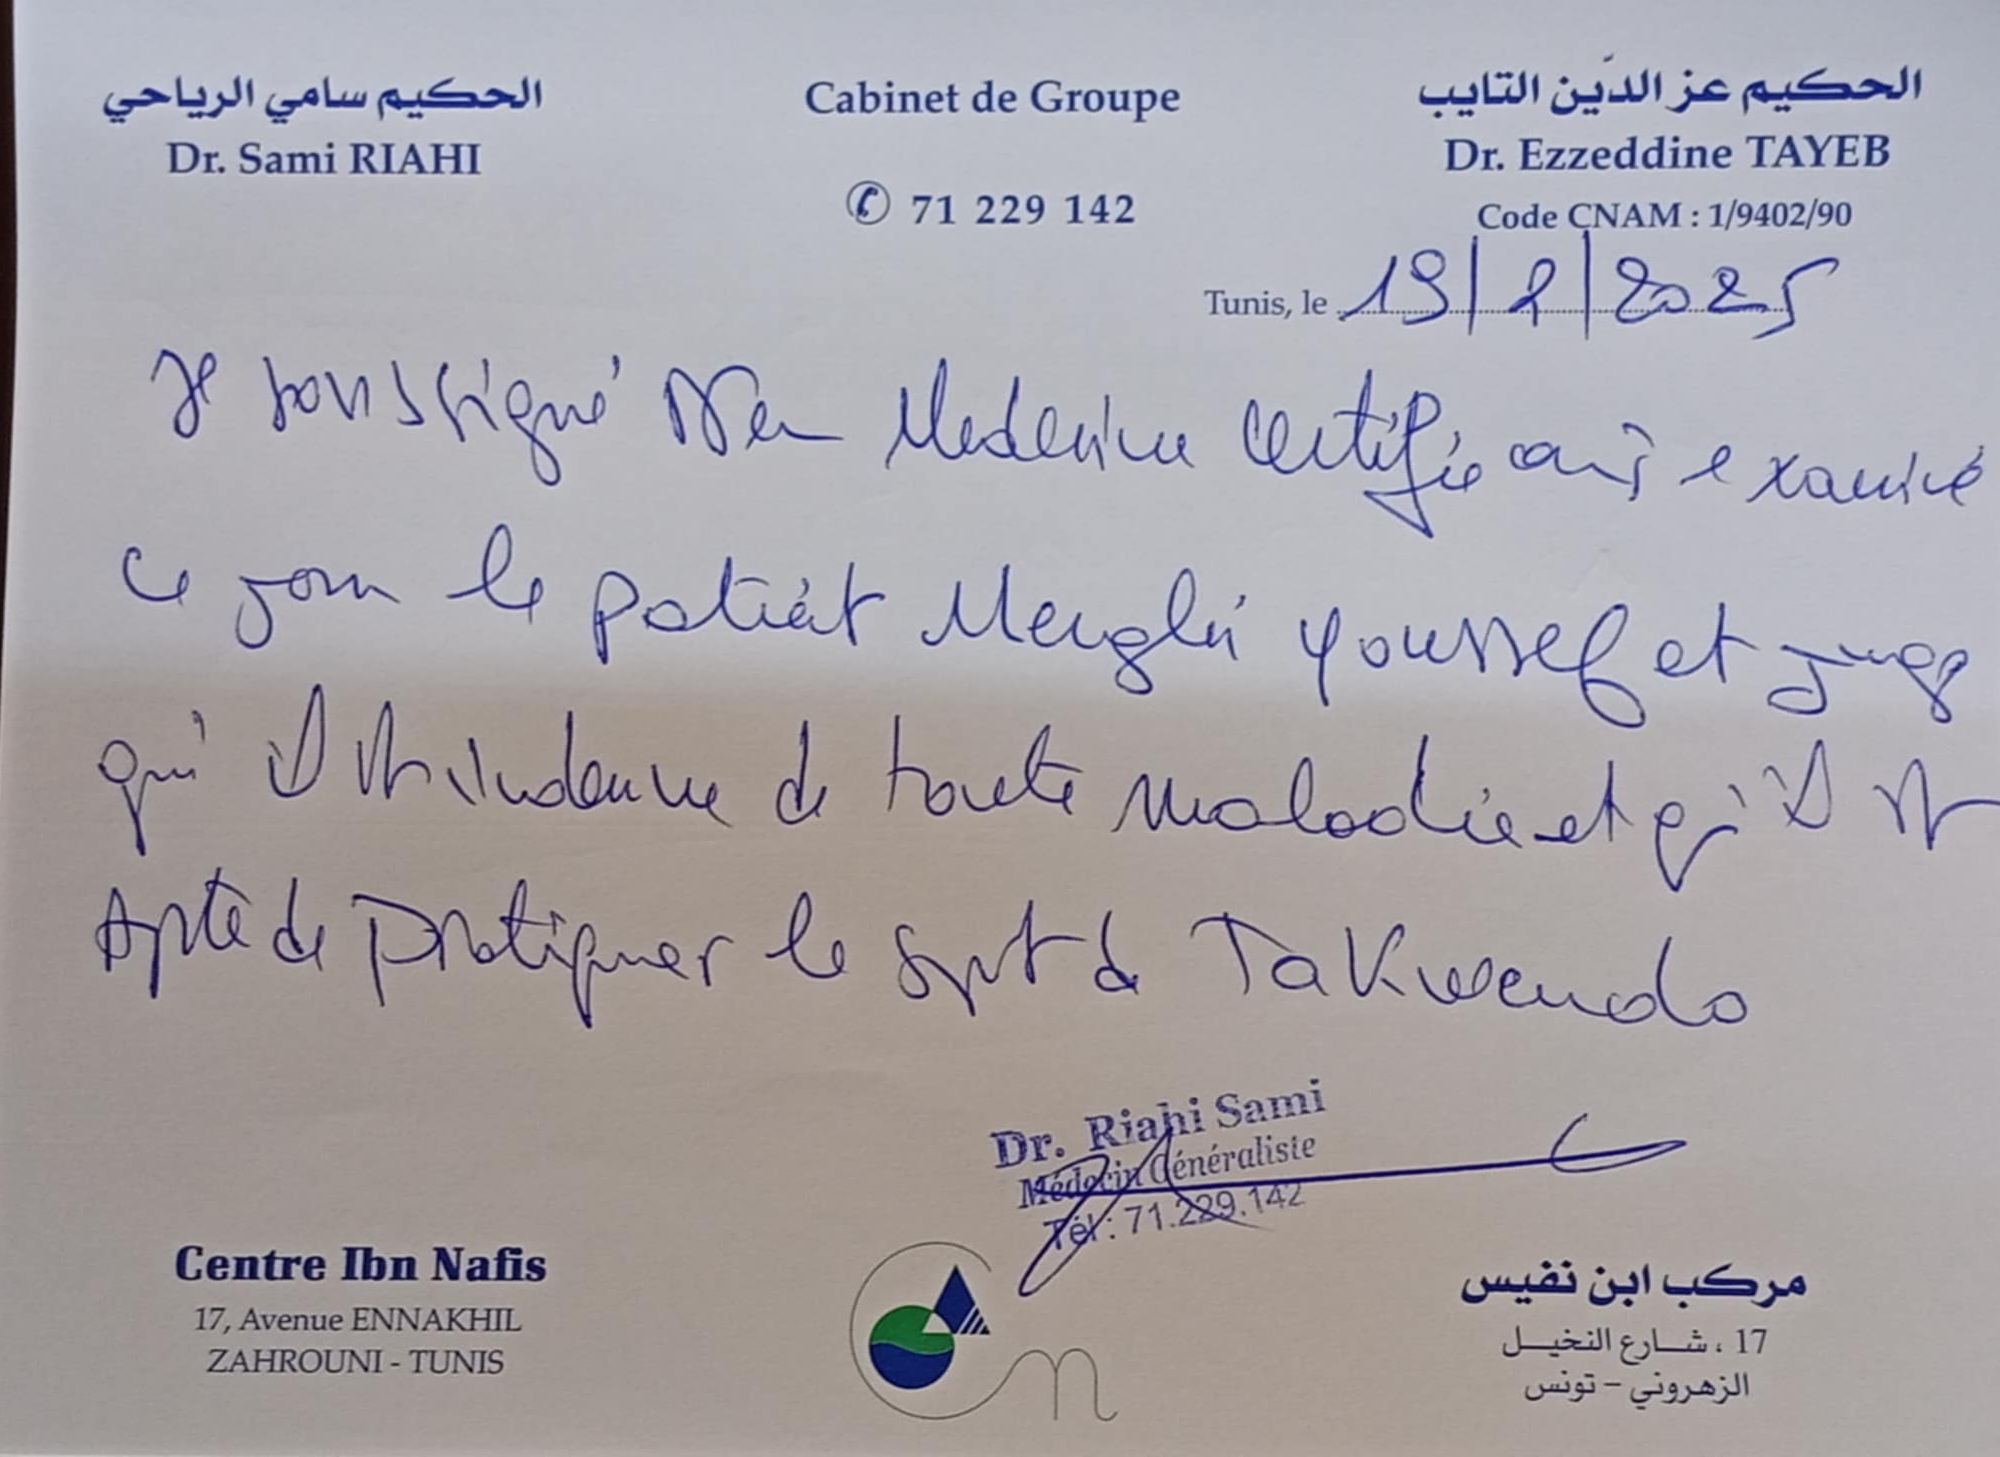 الحكيم سامي الرياحي
Dr. Sami RIAHI
Cabinet de Groupe
✆ 71 229 142
الحكيم عز الدّين التايب
Dr. Ezzeddine TAYEB
Code CNAM : 1/9402/90
Tunis, le 19/2/2025
Je soussigné Dr en Medecine certifie avoir examiné
ce jour le patient Menghi Youssef et juge
qu'il est indemne de toute maladie et qu'il est
Apte de pratiquer le sport de Takwendo
Dr. Riahi Sami
Médecin Généraliste
Tél : 71.229.142
Centre Ibn Nafis
17, Avenue ENNAKHIL
ZAHROUNI - TUNIS
مركب ابن نفيس
17 ، شارع النخيل
الزهروني - تونس